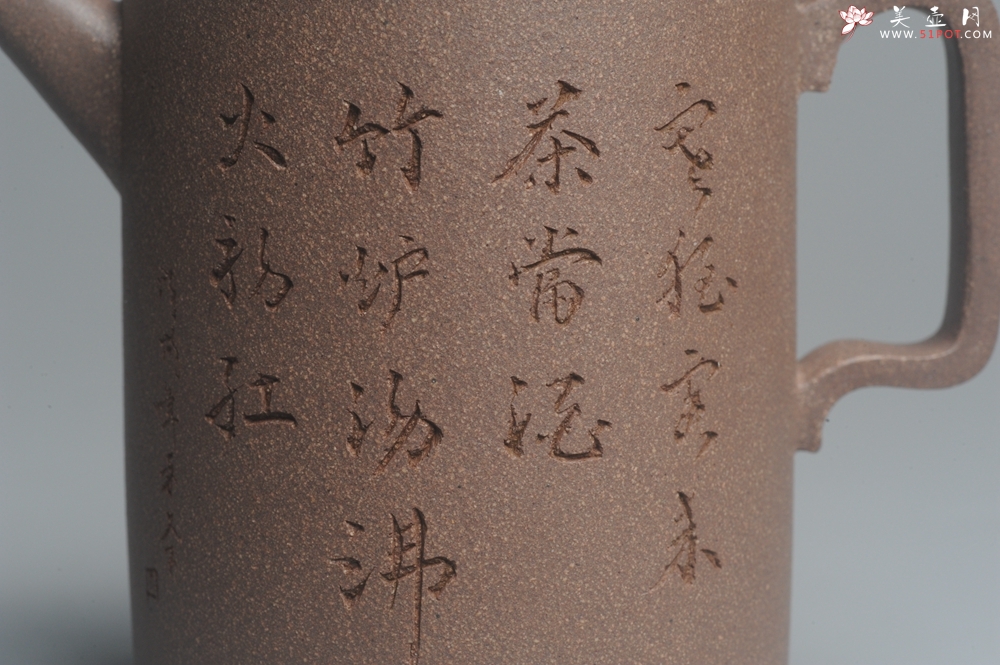 寒夜客来
茶當酒
竹炉湯沸
火初红
美壶网
WWW.51POT.COM